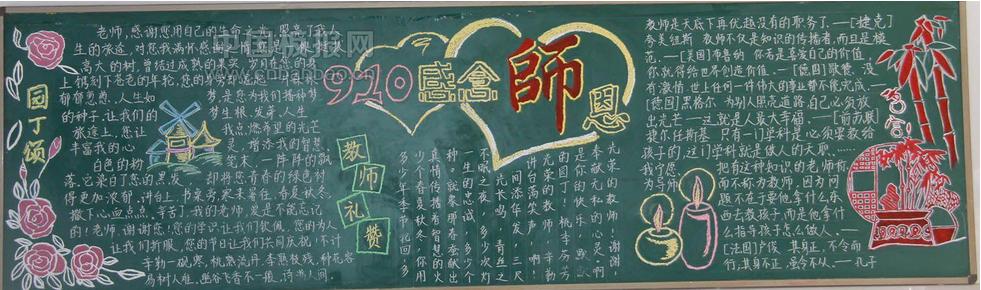 园丁颂
老师,感谢您用自己的生命之光,照亮了我人
生的旅途,对您我满怀感谢之情。您是一棵挺拔
高大的树,曾结过成熟的果实,岁月在您的身
上镌刻下苍老的年轮,您的
郁郁葱葱。人生如梦,是您为我们播种梦
的种子,让我们的梦生根、发芽,人生
旅途上,您让我点燃希望的光芒
丰富我的心灵,增添我的智慧。
白色的粉笔末,一阵阵的飘
落,它染白了您的黑发,却将您青春的绿色树
得更加浓郁,讲台上,书桌旁,寒来暑往,春夏秋冬,
撒下心血点点,辛苦了,我的老师,岁月不能忘记
的!老师,谢谢您!您的学识让我们钦佩,您的为人
让我们折服,您的节日让我们共同庆祝!不计
辛勤一砚寒,桃熟流丹,李熟枝残,种花容
易树人难。幽谷飞香不一般,诗满人间,
910
感念
師
恩
教师礼赞
光荣的教师,谢谢
本献无私的心灵。啊
是你的快乐
的园丁!桃李芬芳
光荣的教师,辛勤
讲台满笑声。啊!
间添华发,三尺
光长鸣。青丝之
不眠之夜,多少次灯
一生的忠诚。多少个
种。就象那春蚕献出
真情传播着智慧的火
少个春夏秋冬。你用
多少年季节轮回,多
教师是太阳底下再优越没有的职务了.——[捷克]
夸美纽斯 教师不仅是知识的传播者,而且是模
范.——[美国]布鲁纳 你若是喜爱自己的价值,
你就得给世界创造价值.——[德国]歌德 没
有激情,世上任何一件伟大的事业都不能完成.——
[德国]黑格尔 为别人照亮道路,自己必须放
出光芒——这就是人最大幸福.——[前苏联]
捷尔任斯基 只有一门学科是必须要教给
孩子的,这门学科就是做人的天职.——
我们愿把有这种知识的老师称
为导师而不称为教师,因为问
题不在于要他拿什么东
西去教孩子,而是他拿什
么指导孩子怎么做人.——
[法国]卢俊 其身正,不令而
行,其身不正,虽令不从.——孔子